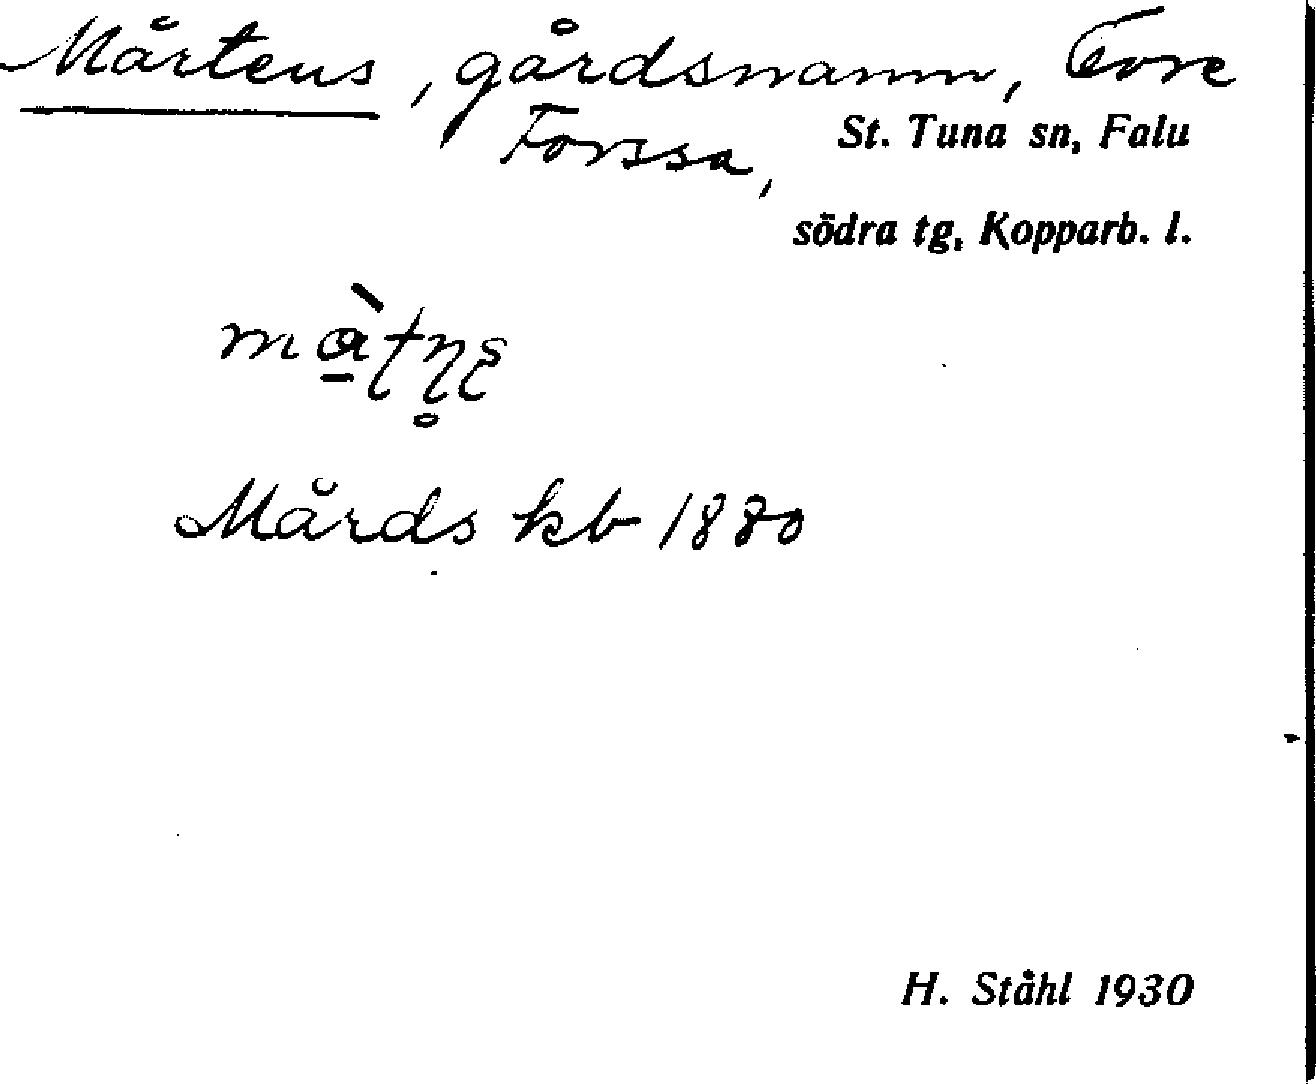 Mårtens, gårdsnamn, Tore
Forssa,
St. Tuna sn, Falu
södra tg, Kopparb. l.
Mårds kb 1880
H. Ståhl 1930